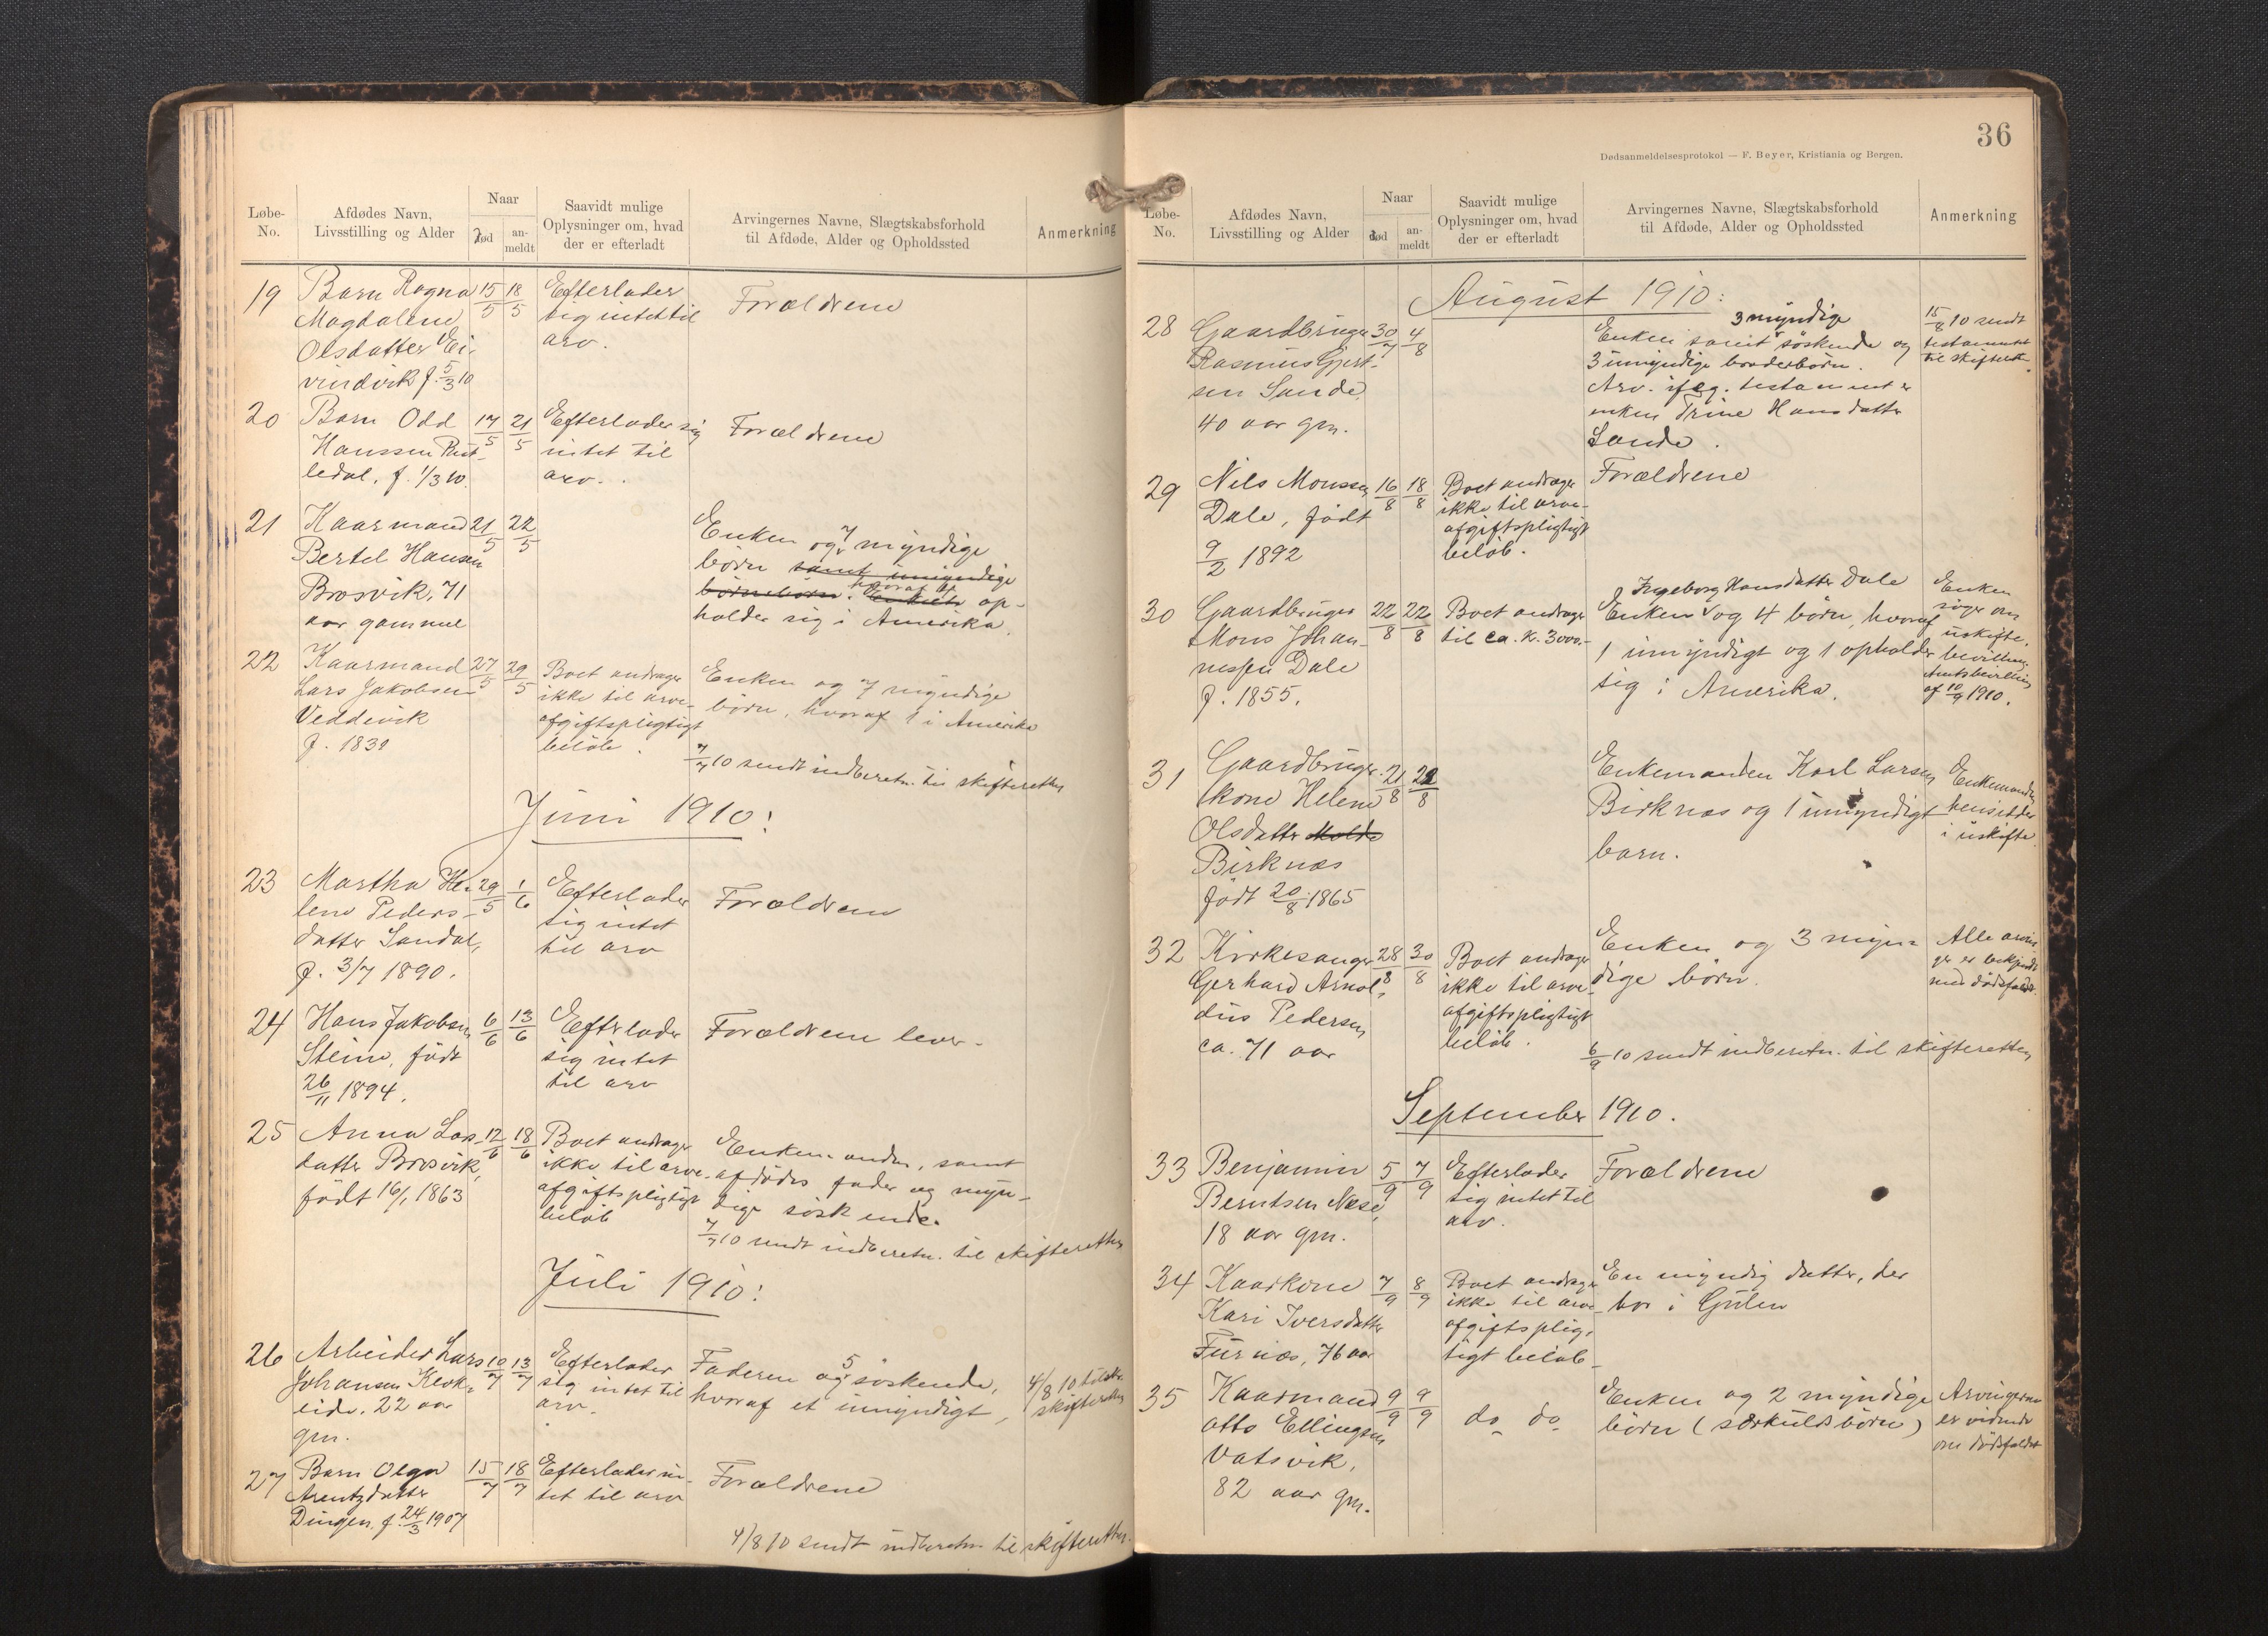 Løbe-
No.
Afdødes Navn,
Livsstilling og Alder
Naar
død
an-
meldt
Saavidt mulige
Oplysninger om, hvad
der er efterladt
Arvingernes Navne, Slægtskabsforhold
til Afdøde, Alder og Opholdssted
Anmerkning
19
Barn Ragna
Magdalene
Olsdatter Ei-
vindvik f. 5/3 10
15/5
18/5
Efterlader
sig intet til
arv.
Forældrene
20
Barn Odd
Hanssen
ledal, f. 1/3 10.
17/5
21/5
Efterlader sig
intet til
arv.
Forældrene
21
Kaarmand
Bertel Hansen
Brosvik, 71
aar gammel
21/5
22/5
Enken og 7 myndige
børn samt umyndige
børnebørn. hvoraf 4 op-
holder sig i Amerika.
22
Kaarmand
Lars Jakobsen
Veddevik
f. 1832
27/5
29/5
Boet andrager
ikke til arve-
afgiftspligtigt
beløb.
Enken og 7 myndige
børn, hvoraf 1 i Amerika
7/7 10 sendt indberetn. til skifteretten
Juni 1910:
23
Martha He-
lene Peders-
datter Sandal,
f. 3/7 1890.
29/5
1/6
Efterlader
sig intet
til arv
Forældrene
24
Hans Jakobsen
Steine, født
26/11 1894.
6/6
13/6
Efterlader
sig intet
til arv
Forældrene lever.
25
Anna Las-
datter Brosvik,
født 16/1 1863
12/6
18/6
Boet andrager
ikke til arve-
afgiftspligtigt
beløb
Enkemanden, samt
afdødes fader og myn-
dige søskende.
7/7 10 sendt indberetn. til skifteretten
Juli 1910:
26
Arbeider Lars
Johansen Klok-
eide, 22 aar
gm.
10/7
13/7
Efterlader
sig intet til
arv.
Faderen og 5 søskende,
hvoraf et umyndigt,
4/8 10
skifteretten
27
Barn Olga
Arentzdatter
Dingen, f. 24/3 1907
15/7
18/7
Efterlader in-
tet til arv
Forældrene
4/8 10 sendt indberetn til skifteretten.
36
Dødsanmeldelsesprotokol — F. Beyer, Kristiania og Bergen.
Løbe-
No.
Afdødes Navn,
Livsstilling og Alder
Naar
død
an-
meldt
Saavidt mulige
Oplysninger om, hvad
der er efterladt
Arvingernes Navne, Slægtskabsforhold
til Afdøde, Alder og Opholdssted
Anmerkning
August 1910:
28
Gaardbruger
Rasmus Gjert-
sen Sande,
40 aar gm.
30/7
4/8
3 myndige
Enken samt søskende og
3 umyndige broderbørn.
Arv. ifølg. testament er
enken Trine Hansdatter
Sande.
15/8 10 sendt
testamentet
til skifteret.
29
Nils Monssen
Dale, født
9/2 1892
16/8
18/8
Boet andrager
ikke til arve-
afgiftspligtigt
beløb.
Forældrene
30
Gaardbruger
Mons Johan-
nessen Dale
f. 1855.
22/8
22/8
Boet andrager
til ca. K. 3000.-
Ingeborg Hansdatter Dale
Enken og 4 børn, hvoraf
1 umyndigt og 1 opholder
sig i Amerika.
Enken
søger om
uskifte
bevilling
Amtsbevilling
af 10/9 1910.
31
Gaardbruger-
kone Helene
Olsdatter Molde
Birknæs
født 20/8 1865
21/8
22/8
Enkemanden Karl Larsen
Birknæs og 1 umyndigt
barn.
Enkemanden
hensidder
i uskifte.
32
Kirkesanger
Gerhard Arnol-
dus Pedersen
ca. 71 aar
28/8
30/8
Boet andrager
ikke til arve-
afgiftspligtigt
beløb.
Enken og 3 myn-
dige børn.
Alle arvin-
ger er bekjendt
med dødsfaldet.
6/9 10 sendt indberetn. til skifteretten
September 1910.
33
Benjamin
Berntsen Nese,
18 aar gm.
5/9
7/9
Efterlader
sig intet til
arv.
Forældrene
34
Kaarkone
Kari Iversdatter
Furnæs, 76 aar
7/9
8/9
Boet andrager
ikke til arve-
afgiftsplig-
tigt beløb
En myndig datter, der
bor i Gulen
35
Kaarmand
Otto Ellingsen
Vatsvik,
82 aar gm.
9/9
9/9
do do
Enken og 2 myndige
børn (særkuldsbørn)
Arvingerne
er vidende
om dødsfaldet